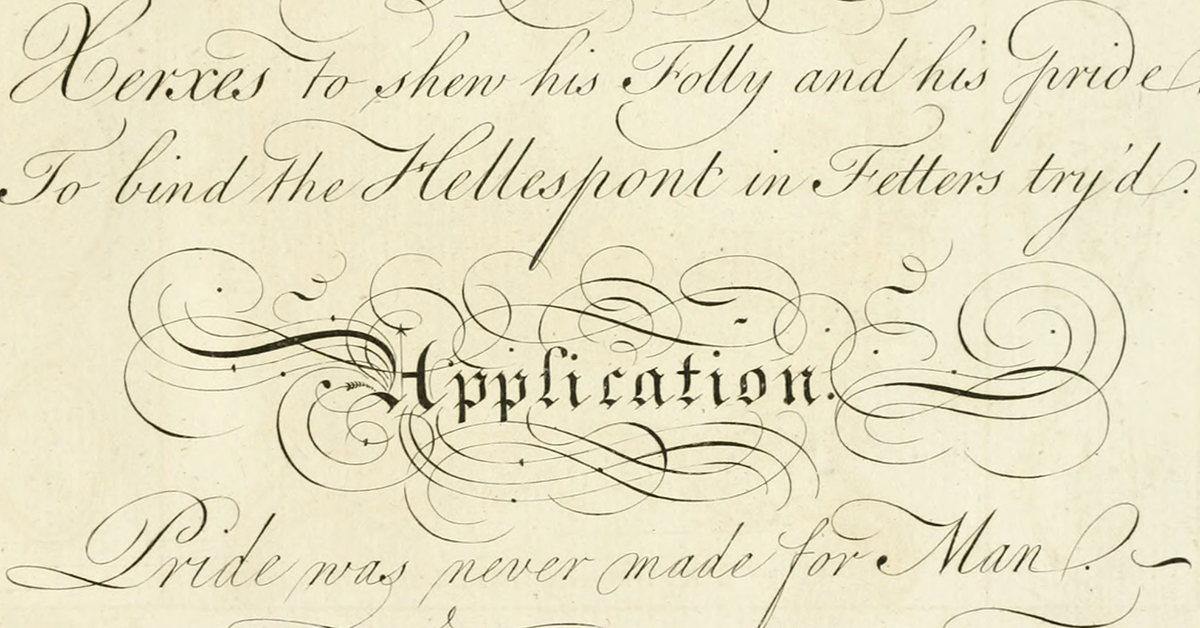 Xerxes to shew his Folly and his pride
To bind the Hellespont in Fetters try'd.
Application.
Pride was never made for Man.